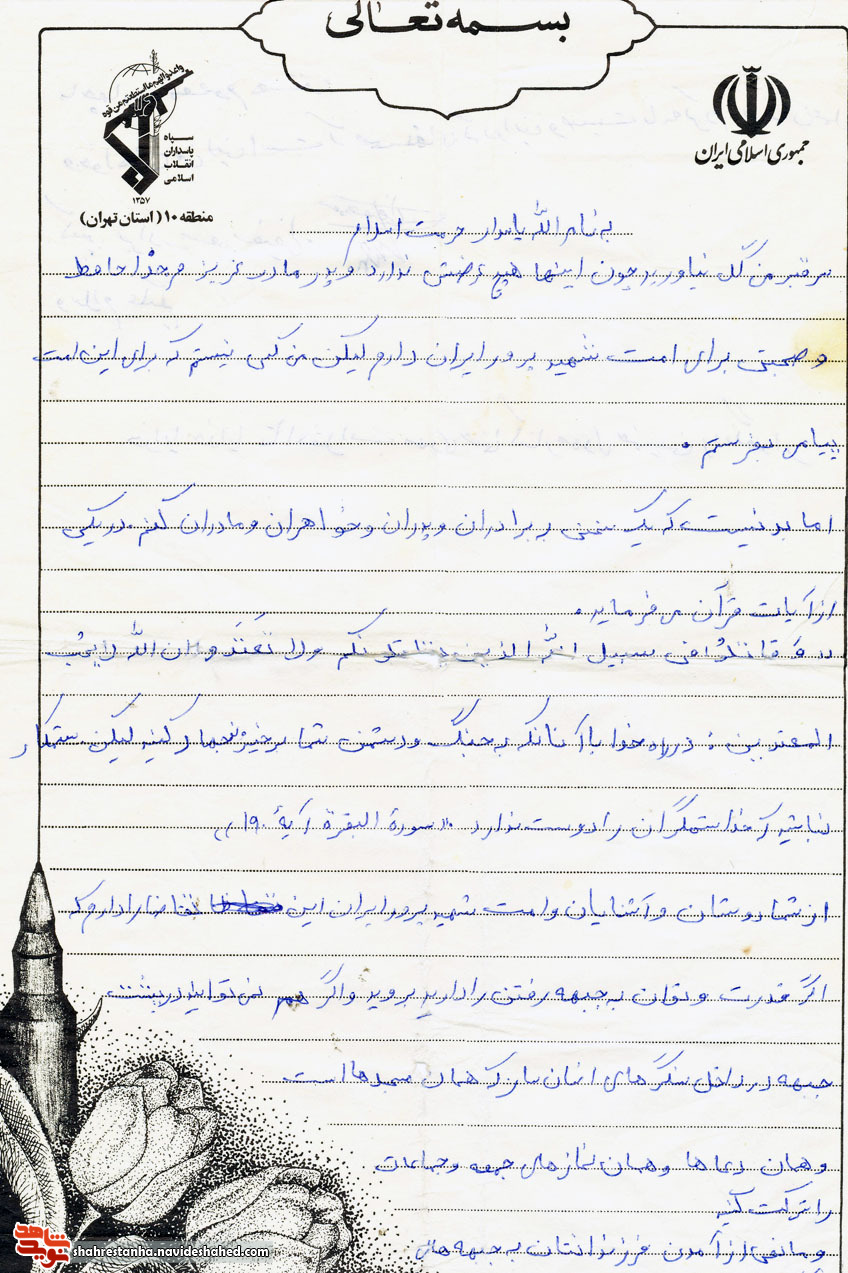 بسمه تعالی
جمهوری اسلامی ایران
سپاه
پاسداران
انقلاب
اسلامی
۱۳۵۷
منطقه ۱۰ (استان تهران)
به نام الله پاسدار حرمت اسلام
سر قبر من گل نیاورید چون اینها هیچ ارزشی ندارد و پدر و مادر عزیزم خداحافظ
و صحبتی برای امت شهید پرور ایران دارم لیکن من کسی نیستم که برای این امت
پیامی بفرستم .
اما بد نیست که یک سخنی به برادران و پدران و خواهران و مادران کنم . در یکی
از آیات قرآن می فرماید .
قاتلوا فی سبیل الله الذین یقاتلونکم ولا تعتدوا ان الله لایحب
المعتدین : در راه خدا با آنانکه به جنگ و دشمنی شما برخیزند جهاد کنید لیکن ستمکار
نباشید که خدا ستمگران را دوست ندارد «سورة البقرة آیهٔ ۱۹۰»
از شما دوستان و آشنایان و امت شهید پرور ایران این تقاضا را دارم که
اگر قدرت و توان به جبهه رفتن را دارید بروید و اگر هم نمی توانید در پشت
جبهه در داخل سنگرهای انسان ساز که همان مسجدها است
و همان دعاها و همان نمازهای جمعه و جماعات
را شرکت کنید
و مانعی از آمدن فرزندانتان به جبهه های
شاهد
نوید
shahrestanha.navideshahed.com